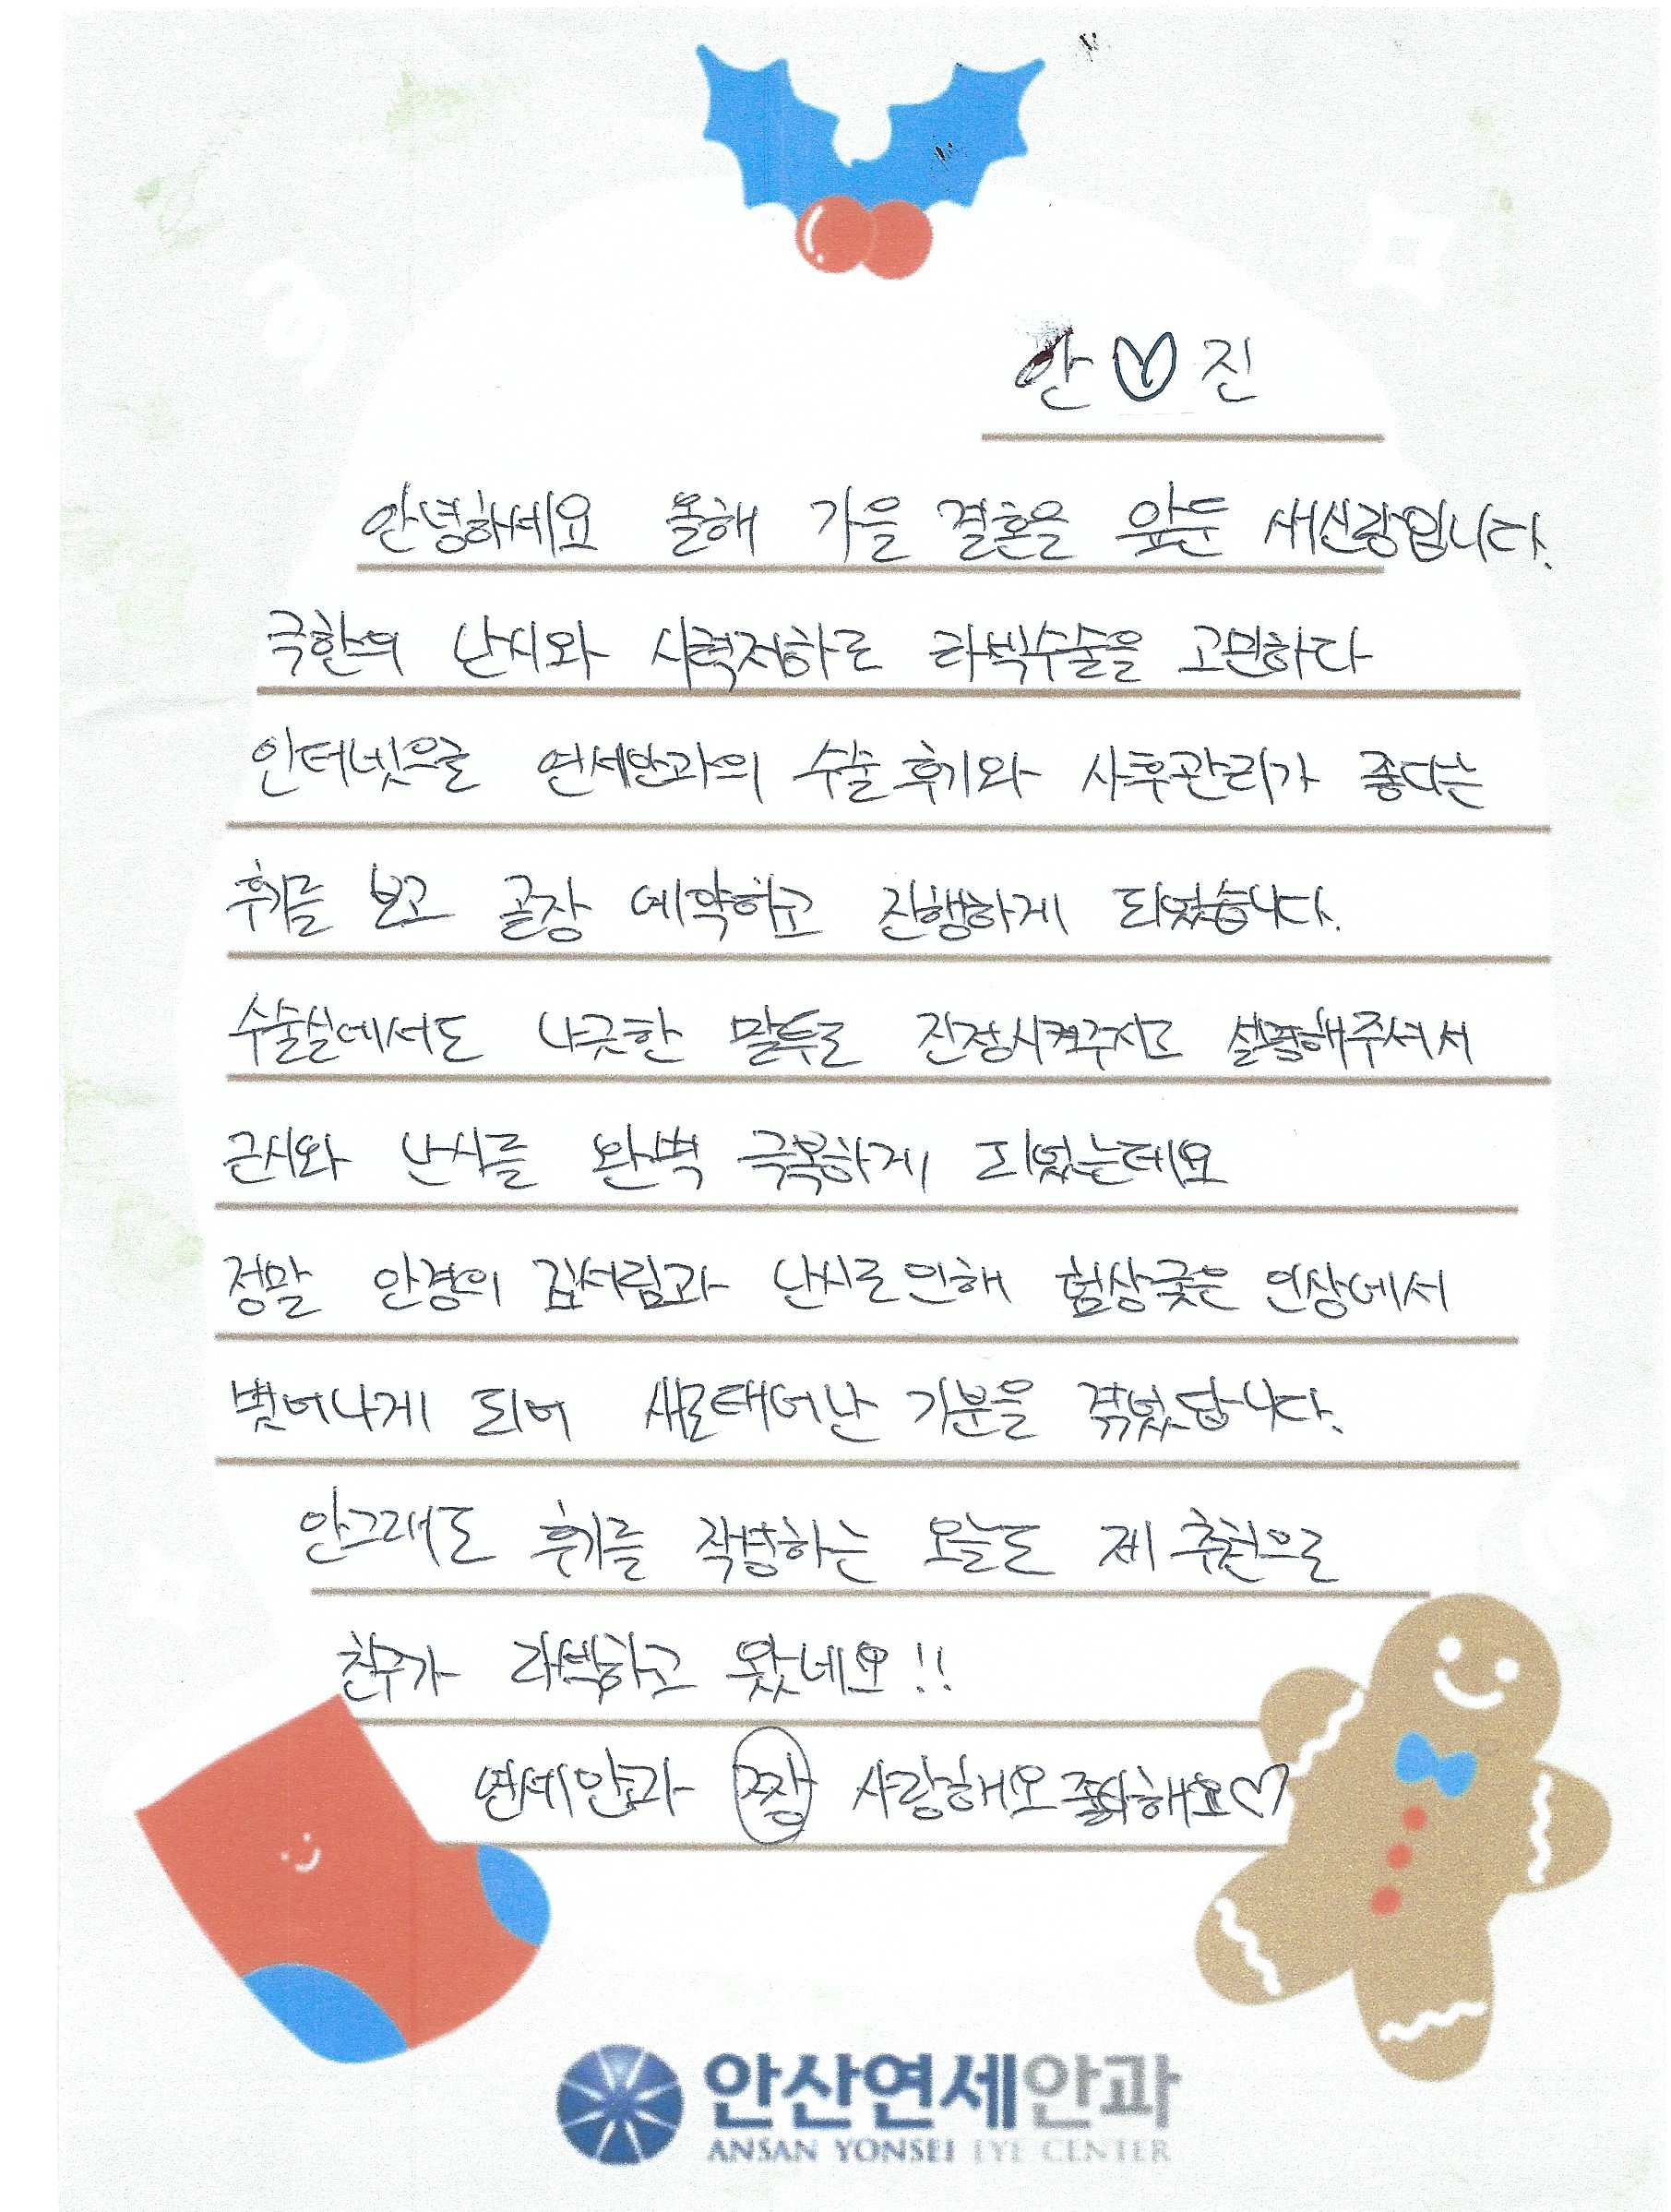 안♡진
안녕하세요 올해 가을 결혼을 앞둔 새신랑입니다.
극한의 난시와 시력저하로 라섹수술을 고민하다
인터넷으로 연세안과의 수술 후기와 사후관리가 좋다는
후기를 보고 곧장 예약하고 진행하게 되었습니다.
수술실에서도 나긋한 말투로 진정시켜주시고 설명해주셔서
근시와 난시를 완벽 극복하게 되었는데요
정말 안경의 김서림과 난시로 인해 험상궂은 인상에서
벗어나게 되어 새로태어난 기분을 겪었답니다.
안그래도 후기를 작성하는 오늘도 제 추천으로
친구가 라섹하고 왔네요!!
연세안과 짱 사랑해요 좋아해요♡
안산연세안과
ANSAN YONSEI EYE CENTER